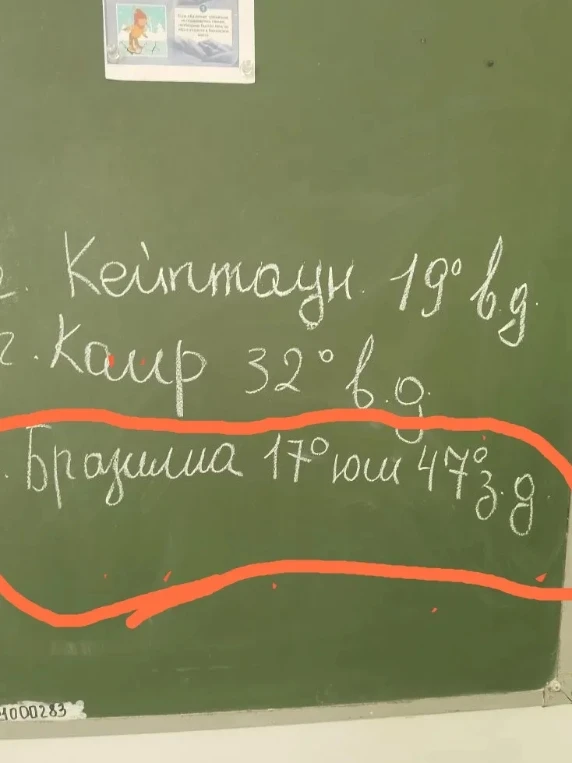 г. Кейптаун. 19° в.д.
г. Каир 32° в.д
. Бразилиа 17° юш 47° з.д.
4000283